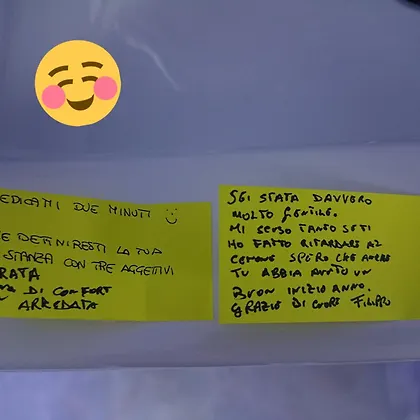 EDICAMI DUE MINUTI
E DEFINIRESTI LA TUA
STANZA CON TRE AGGETTIVI
RATA
DI COMFORT
ARREDATA
SEI STATA DAVVERO
MOLTO GENTILE.
MI SCUSO TANTO SE TI
HO FATTO RITARDARE AL
CENONE SPERO CHE ANCHE
TU ABBIA AVUTO UN
BUON INIZIO ANNO.
GRAZIE DI CUORE FILIPPO